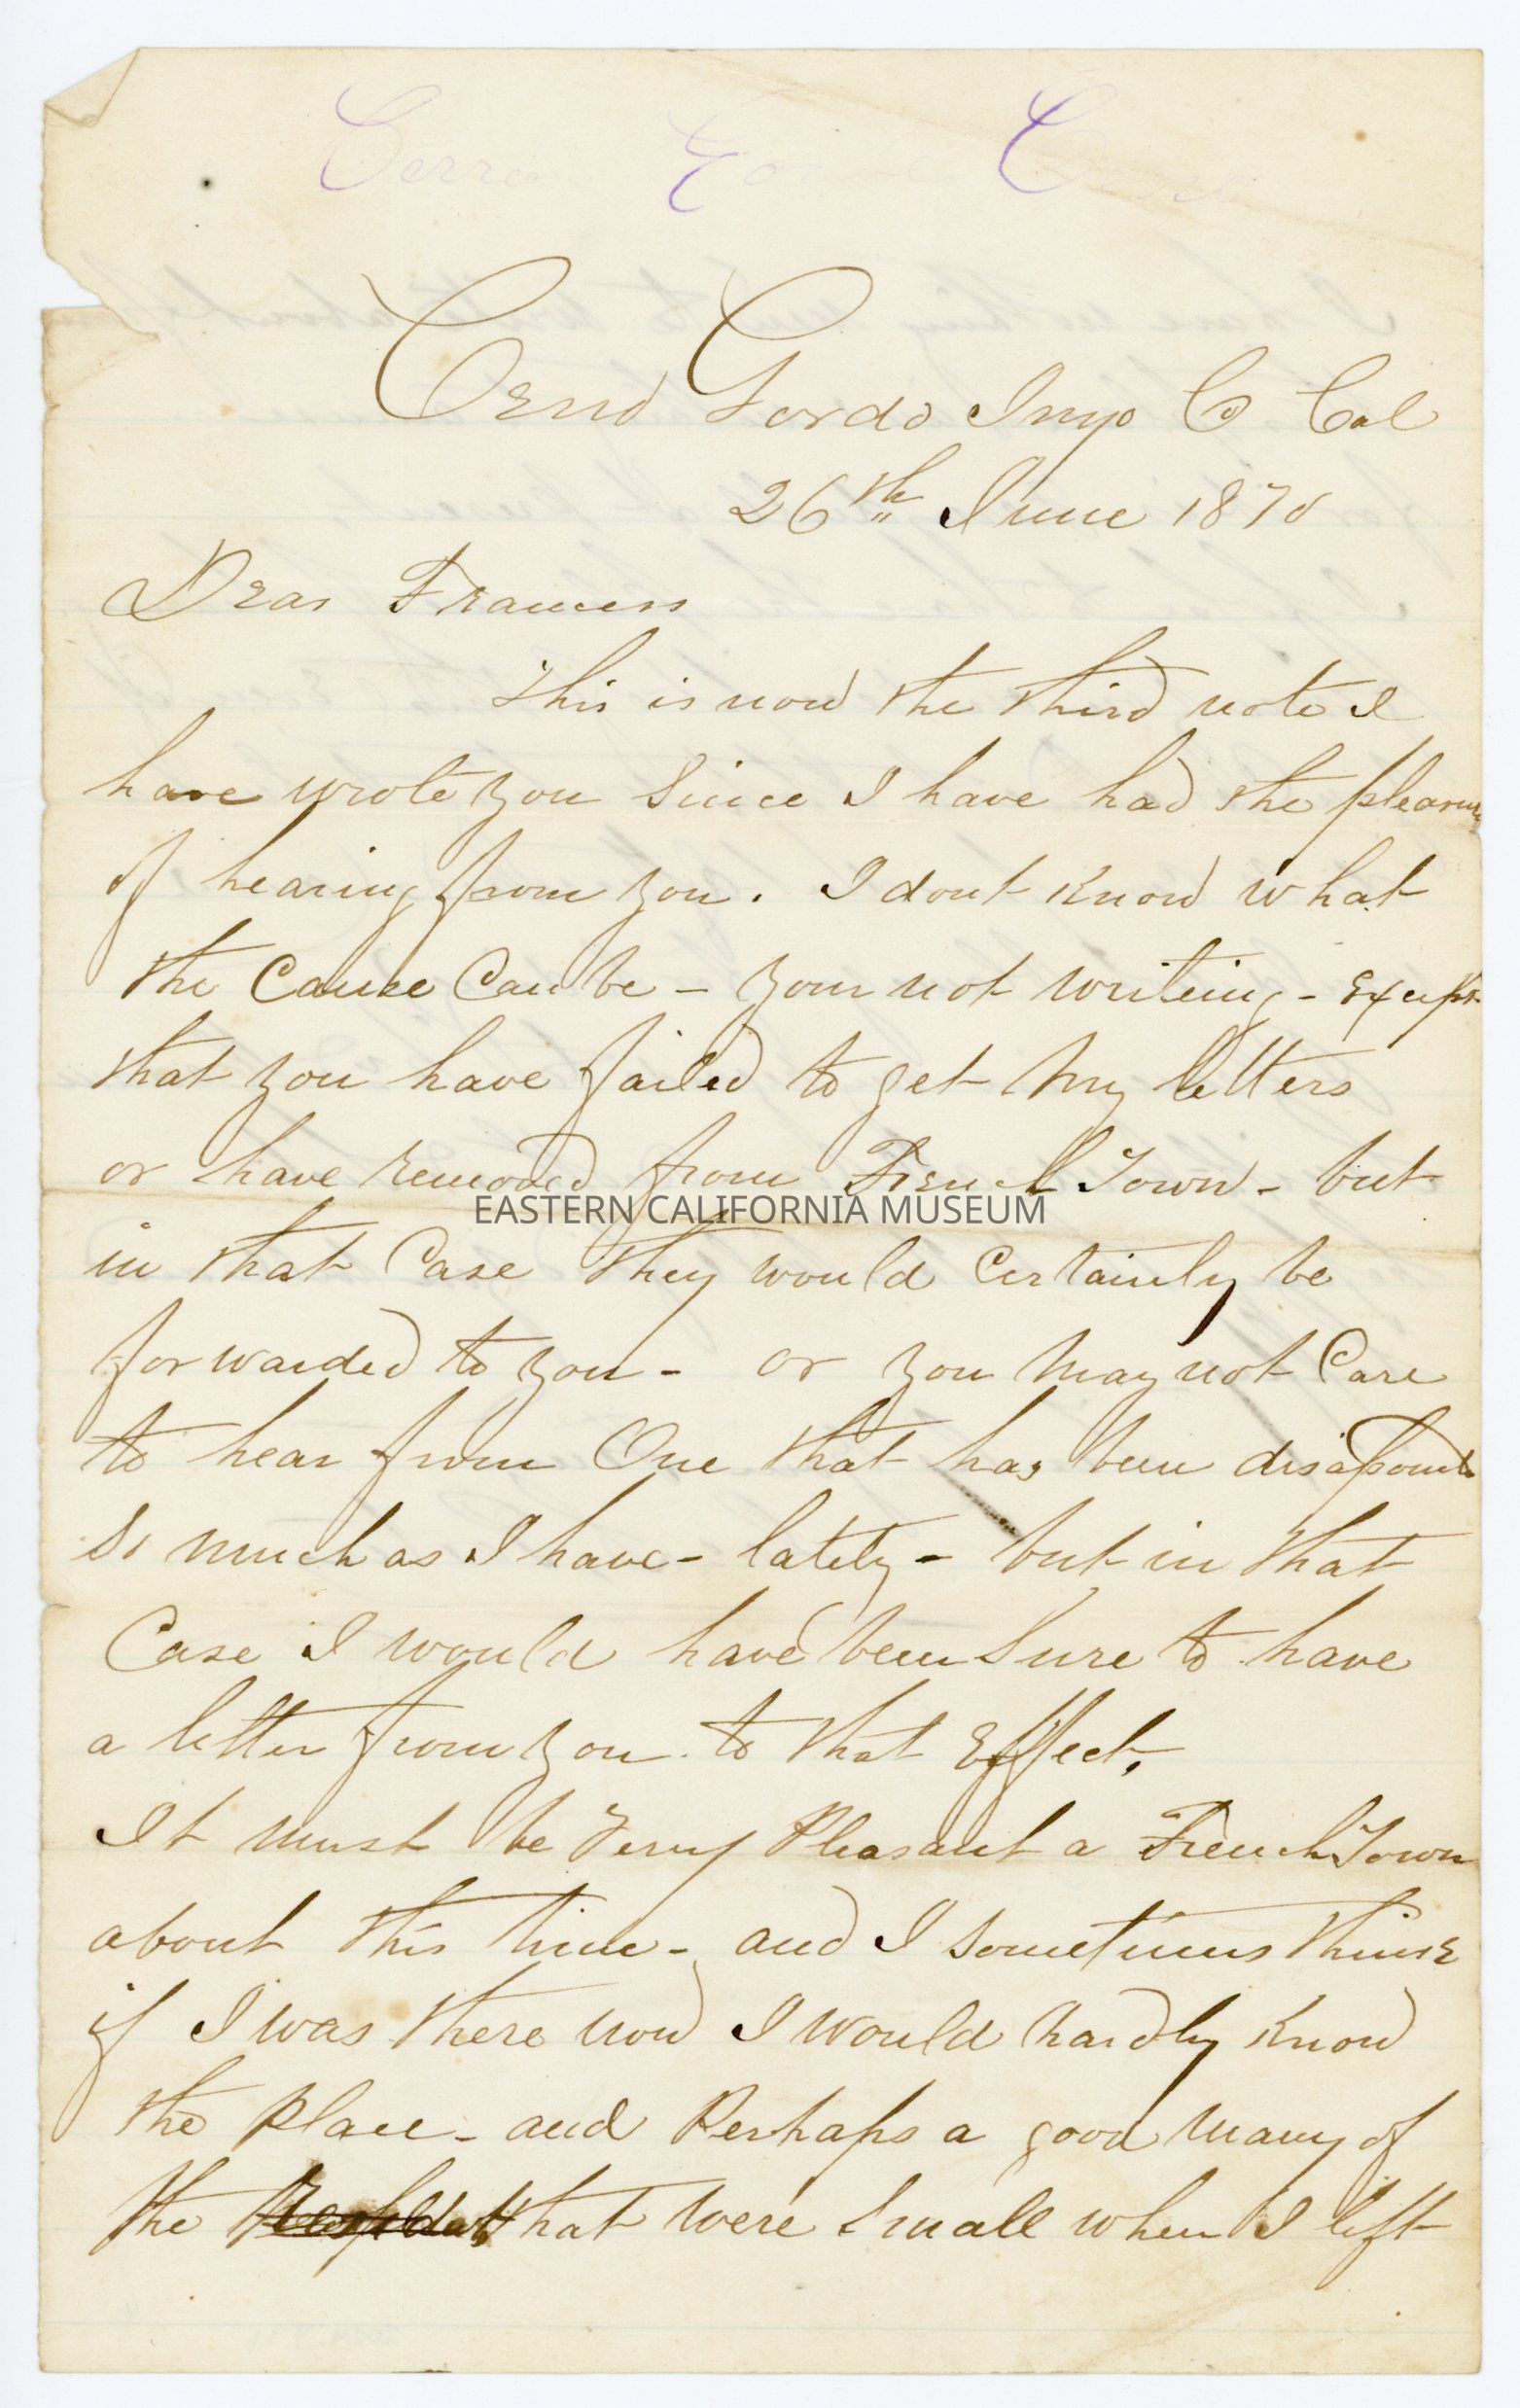 Cerro Gordo
Cerro Gordo Inyo Co Cal
26th June 1870
Dear Francess
This is now the third note I
have wrote you Since I have had the pleasure
of hearing from you. I dont Know what
the Cause Can be - your not writeing - Except
that you have failed to get my letters
or have removed from French Town - but
EASTERN CALIFORNIA MUSEUM
in that Case they would Certainly be
forwarded to you - or you may not Care
to hear from One that has been disapointed
So much as I have - lately - but in that
Case I would have been Sure to have
a letter from you to that Effect.
It must be Very Pleasant a French Town
about this time - and I Sometimes think
if I was there now I would hardly Know
the place - and Perhaps a good many of
the that were Small when I left